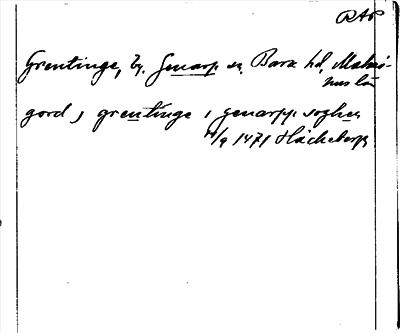 RAP
Grentinge, by. Genarp sn, Bara hd, Malmö-
hus län
gord j grentinge i genarpp soghen
11/9 1471 Häckeberga